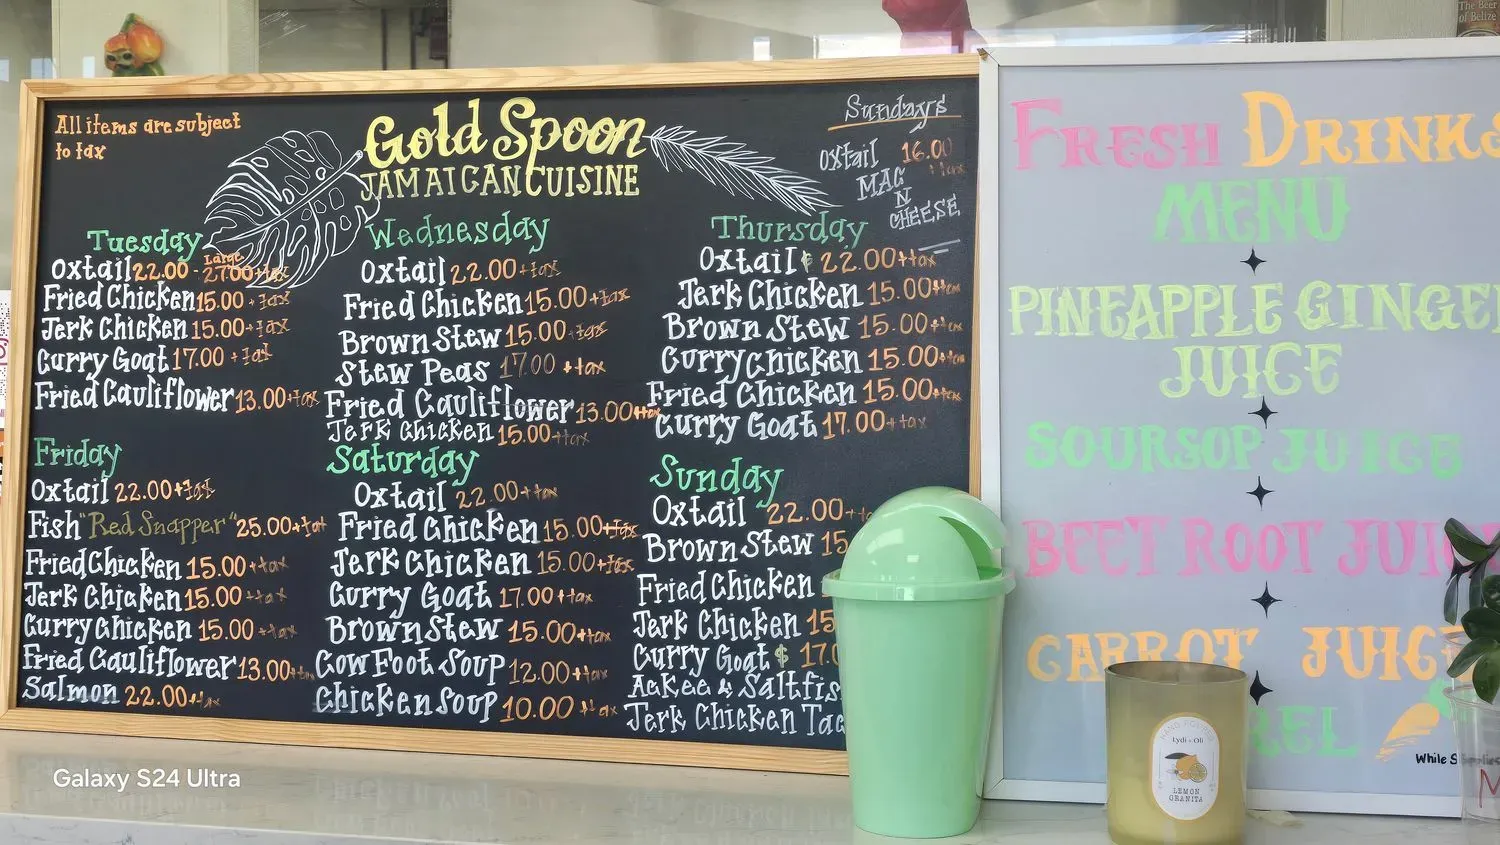 All items are subject
to tax
Gold Spoon
JAMAICAN CUISINE
Sundays
Oxtail 16.00
+tax
MAC
N
CHEESE
Tuesday
Large
Oxtail 22.00 - 27.00+tax
Fried Chicken 15.00 +tax
Jerk Chicken 15.00+tax
Curry Goat 17.00 +tax
Fried Cauliflower 13.00+tax
Wednesday
Oxtail 22.00+tax
Fried Chicken 15.00+tax
Brown Stew 15.00+tax
Stew Peas 17.00 +tax
Fried Cauliflower 13.00+tax
Jerk Chicken 15.00+tax
Thursday
Oxtail $ 22.00+tax
Jerk Chicken 15.00+tax
Brown Stew 15.00+tax
Curry Chicken 15.00+tax
Fried Chicken 15.00+tax
Curry Goat 17.00+tax
Friday
Oxtail 22.00+tax
Fish "Red Snapper" 25.00+tax
Fried Chicken 15.00+tax
Jerk Chicken 15.00+tax
Curry Chicken 15.00+tax
Fried Cauliflower 13.00+tax
Salmon 22.00+tax
Saturday
Oxtail 22.00+tax
Fried Chicken 15.00+tax
Jerk Chicken 15.00+tax
Curry Goat 17.00+tax
Brown Stew 15.00+tax
Cow Foot Soup 12.00+tax
Chicken Soup 10.00 +tax
Sunday
Oxtail 22.00+ta
Brown Stew 15
Fried Chicken
Jerk Chicken 15
Curry Goat $ 17.0
Ackee & Saltfis
Jerk Chicken Tac
FRESH DRINKS
MENU
PINEAPPLE GINGE
JUICE
SOURSOP JUICE
BEET ROOT JUIC
CARROT JUICE
REL
While Supplies
The Beer
of Belize
Lydi & Oli
LEMON
GRANITA
Galaxy S24 Ultra